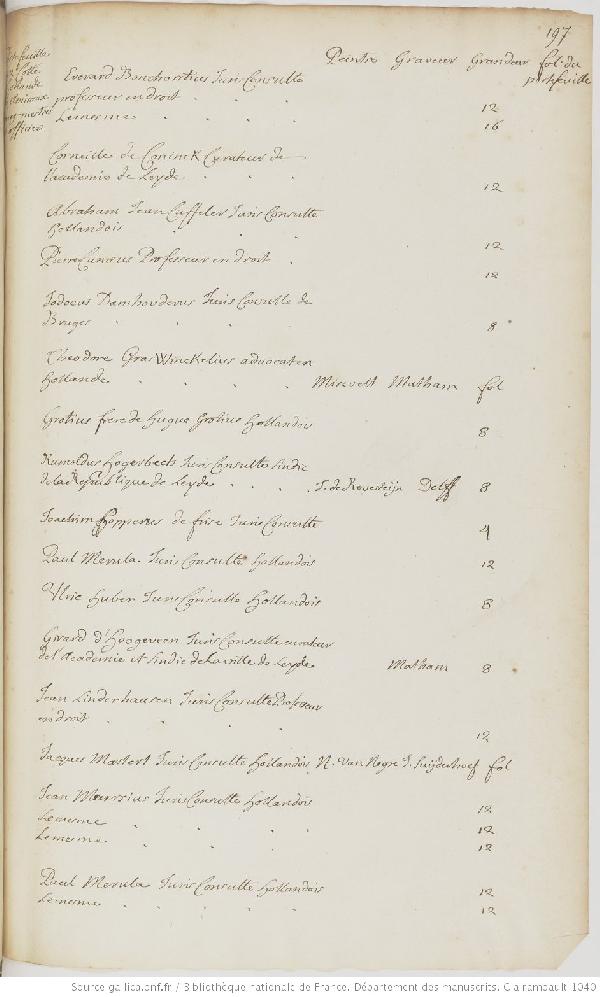 197
Peintre Graveur Grandeur fol. du
portefeuille
Everard Bronchorstius Juris Consulte
professeur en droit 12
Lemesme 16
Corneille de Coninck Curateur de
l'academie de Leyde 12
Abraham Jean Cuffeler Juris Consulte
hollandois 12
Pierre Cunaeus Professeur en droit 12
Jodocus Damhouderus Juris Consulte de
Bruges 8
Theodore GrasWinckelius advocat en
hollande Mirevelt Matham fol
Grotius frere de hugue Grotius hollandois 8
Rumoldus Hogerbeets Juris Consulte Sindic
de la Republique de Leyde J. de Ravesteijn Delff 8
Joachim hopperus de frise Juris Consulte 4
Paul Merula Juris Consulte hollandois 12
Ulric huber Juris Consulte hollandois 8
Girard d'Hoogeveen Juris Consulte curateur
de l'Academie et Sindic de la ville de Leyde Matham 8
Jean Linderhausen Juris Consulte Professeur
en droit 12
Jacques Mastert Juris Consulte hollandois N. Van Negre J. Suijderhoef fol
Jean Meursius Juris Consulte hollandois 12
Lemesme 12
Lemesme 12
Paul Merula Juris Consulte hollandois 12
Lemesme 12
Source gallica.bnf.fr / Bibliothèque nationale de France. Département des manuscrits. Clairambault 1040